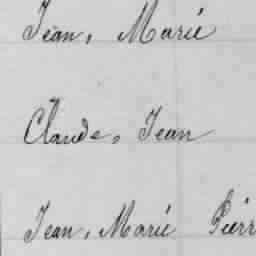 Jean, Marie
Claude, Jean
Jean, Marie Pierr